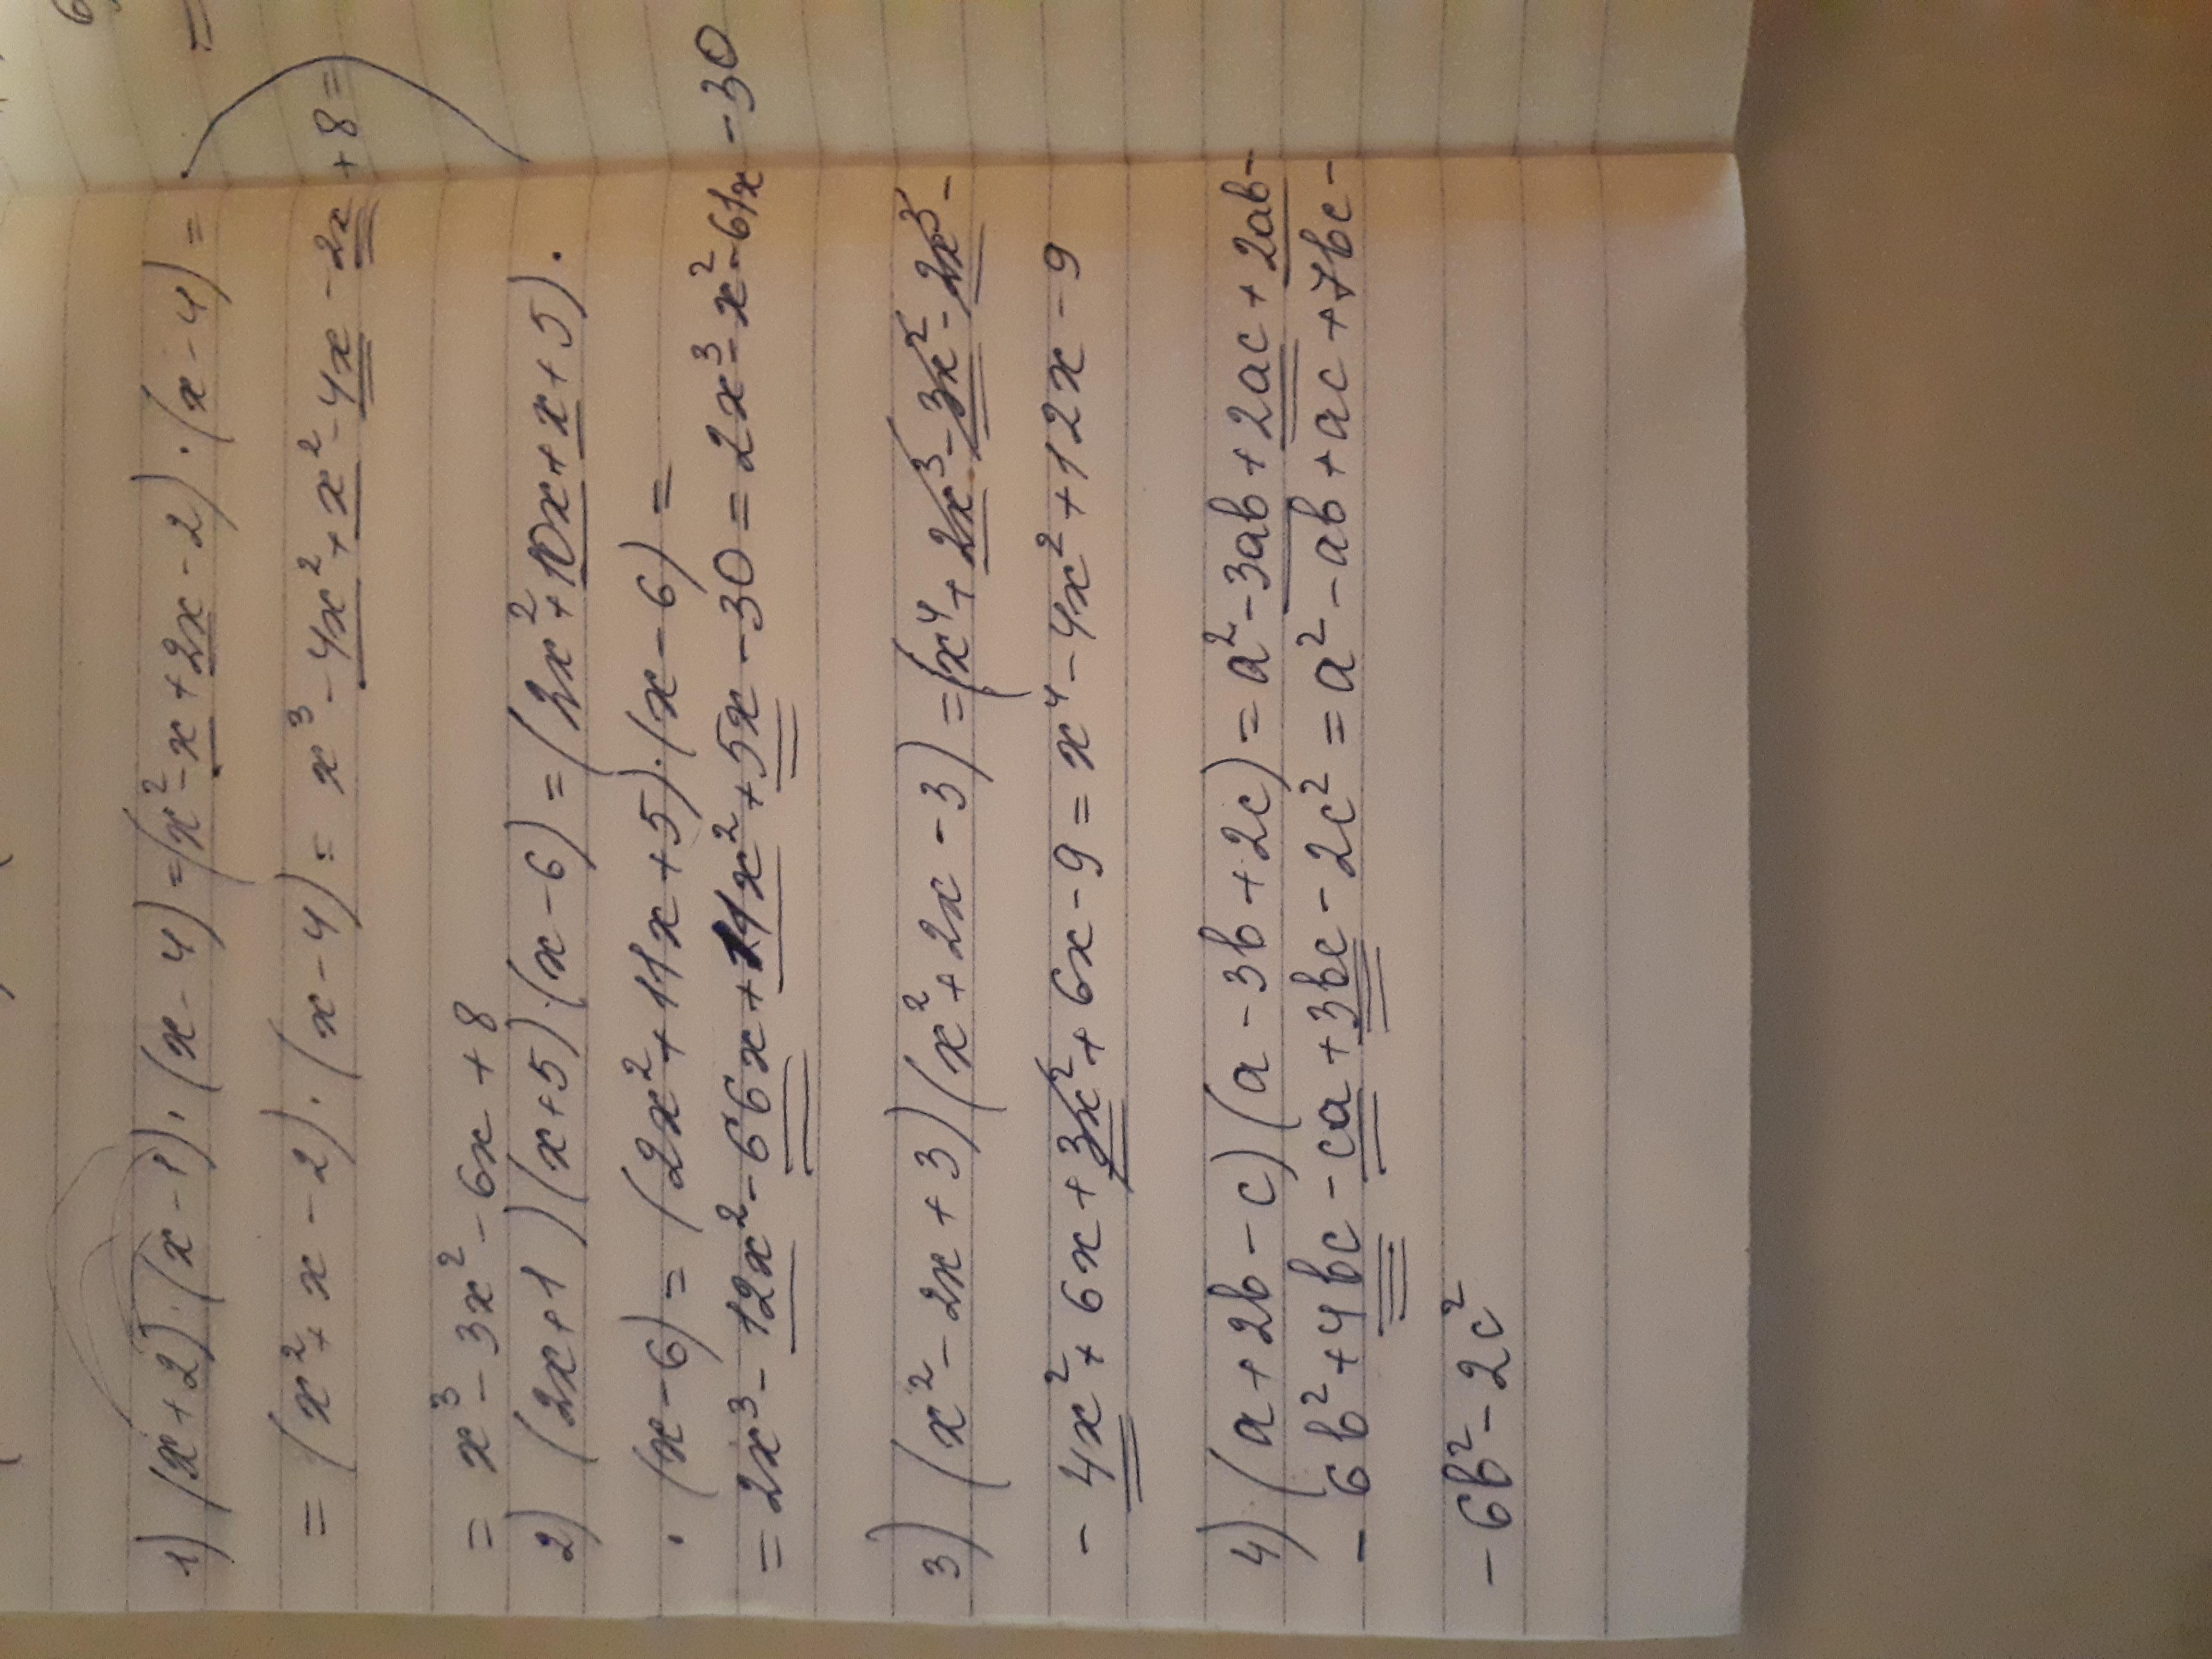 1) (x+2)·(x-1)·(x-4)=(x²-x+2x-2)·(x-4)=
=(x²+x-2)·(x-4)=x³-4x²+x²-4x-2x+8=
=x³-3x²-6x+8
2) (2x+1)(x+5)·(x-6)=(2x²+10x+x+5)·
·(x-6)=(2x²+11x+5)·(x-6)=
=2x³-12x²-66x+11x²+5x-30=2x³-x²-61x-30
3) (x²-2x+3)(x²+2x-3)=(x⁴+2x³-3x²-2x³-
-4x²+6x+3x²+6x-9=x⁴-4x²+12x-9
4) (a+2b-c)(a-3b+2c)=a²-3ab+2ac+2ab-
-6b²+4bc-ca+3bc-2c²=a²-ab+ac+7bc-
-6b²-2c²